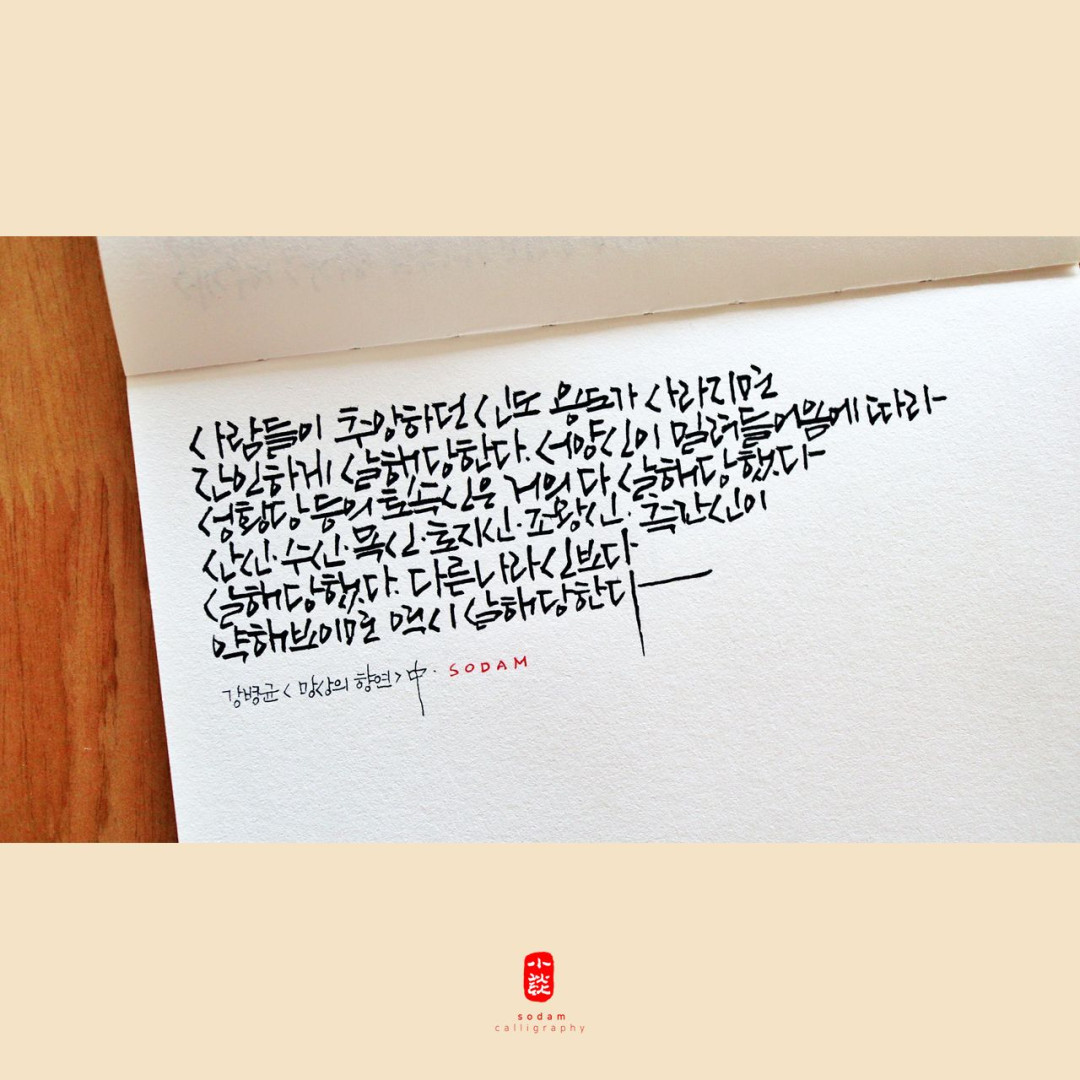 사람들이 추앙하던 신도 용도가 사라지면
잔인하게 살해당한다. 서양신이 밀려들어옴에 따라
성황당 등의 토속신은 거의 다 살해당했다
산신·수신·목신·토지신·조왕신·측간신이
살해당했다. 다른나라신보다
약해보이므로 역시 살해당한다
강병균 < 망상의 향연 > 中. SODAM
小談
sodam
calligraphy